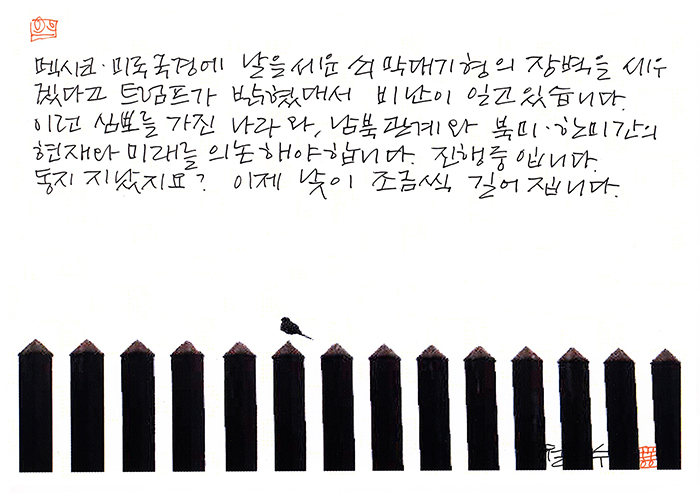 멕시코·미국 국경에 날을 세운 쇠 막대기형의 장벽을 세우
겠다고 트럼프가 밝혔대서 비난이 일고 있습니다.
이런 심뽀를 가진 나라와, 남북관계와 북미·한미간의
현재와 미래를 의논해야 합니다. 진행중입니다.
동지 지났지요? 이제 낮이 조금씩 길어집니다.
철수